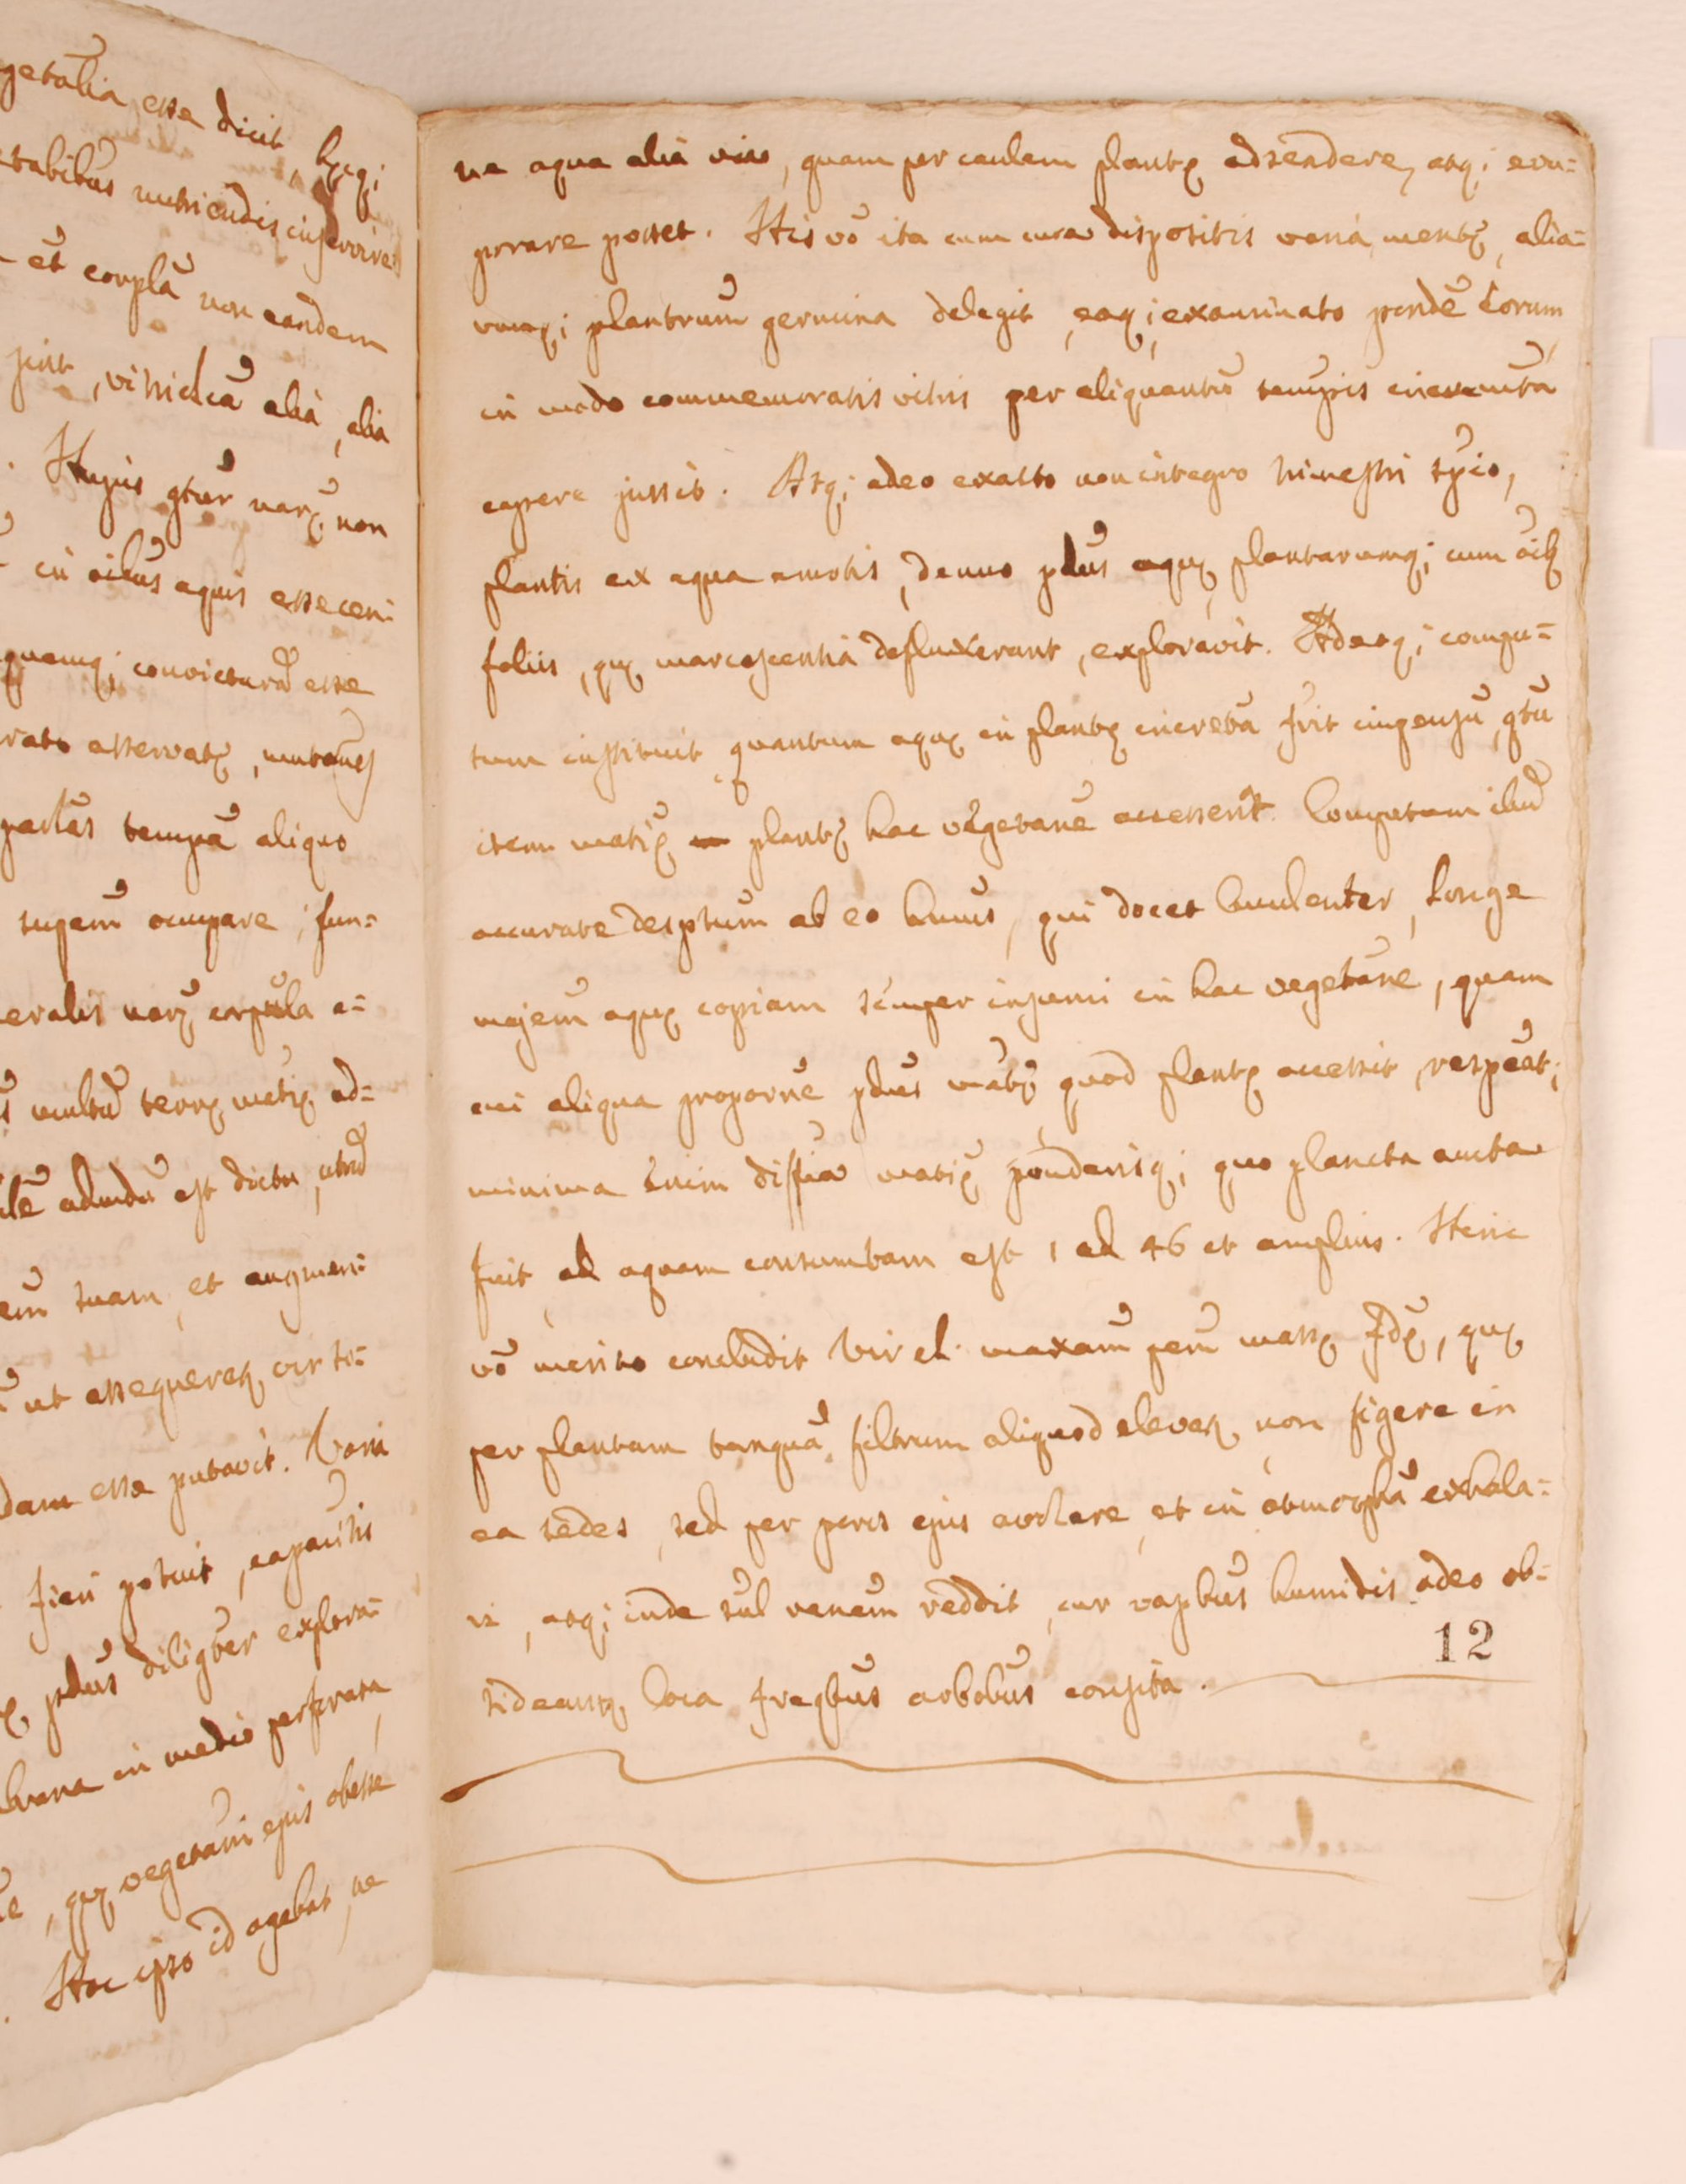 getãlia esse dicit, hęcq;
etabilibus nutriendis inservire
et corpla non eandem
sint, vitriolica alia, alia
Hujus gtur narę non
in oibus aquis esse
quemq; convicturũ esse
rato asservatę, mutanes
partes tempe aliquo
supem occupare, sun=
eralis narę corpula a=
multũ terrę matię ad=
admdu est dictu, utrũ
em suam, et augmen=
ut assequereꝉ vir so=
dam esse putavit. Varia
fieri potuit, capacitis
pdus diligter explora=
brana in medio perforata
, quę vegetaõni ejus obesse
Hoc ipso id agebat, ne
ne aqua alia via, quam per caulem plantę adscendere, atq; eva=
porare posset. His võ ita cum cura dispositis varia mentę, alia=
rumq; plantrum germina delegit, eaq; examinato pondẽ eorum
in modo commemoratis vitris per aliquantũ tempris incremta
capere jussit. Atq; adeo exacto non integro trimestri spcio,
plantis ex aqua amotis, denuo pdus aquę plantarumq; cum oib
foliis, quę marcescentia defluxerant, exploravit. Adeoq; compu=
tum instituit, quantum aquę in plantę increta fuit impensũ, qtũ
item matię plantę hac vegetane accesserit. Computum illud
accurate descptum ab eo hmus, qui docet luculenter, longe
majem aquę copiam semper insumi in hac vegetane, quam
cui aliqua proporne pdus matę quod plantę accessit, respeat;
minima enim diffia matię ponderisq; quo plancta aucta
fuit, ad aquam consumtam est 1 ad 46 et amplius. Hinc
võ merito concludit Vir cl. maxam pem massę fdę, quę
per plantam tanquã filtrum aliquod elevaꝉ, non figere in
ea sedes, sed per poros ejus avolare, et in atmosphã exhala=
ri, atq; inde sul ranem reddit, cur vapbus humidis adeo ob=
sideantꝉ loca freqbus arbobus consita.
12